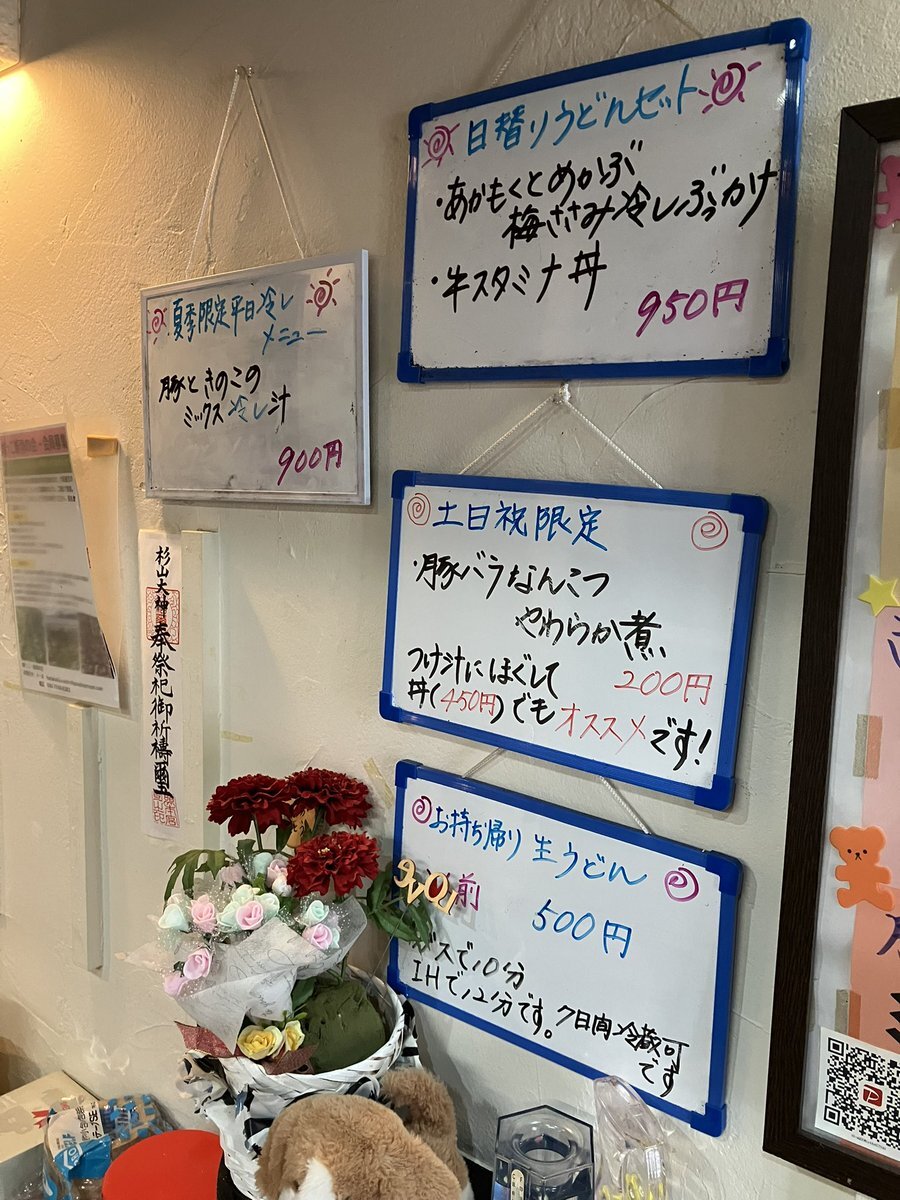 日替りうどんセット
・あかもくとめかぶ
梅ささみ冷しぶっかけ
・牛スタミナ丼
950円
夏季限定平日冷し
メニュー
豚ときのこの
ミックス冷し汁
900円
土日祝限定
・豚バラなんこつ
やわらか煮
200円
つけ汁にほぐして
丼(450円)でもオススメです!
お持ち帰り 生うどん
前
500円
ガスで10分
IHで12分です。7日間冷蔵可
です
杉山大神
奉祭祀御祈禱璽
love